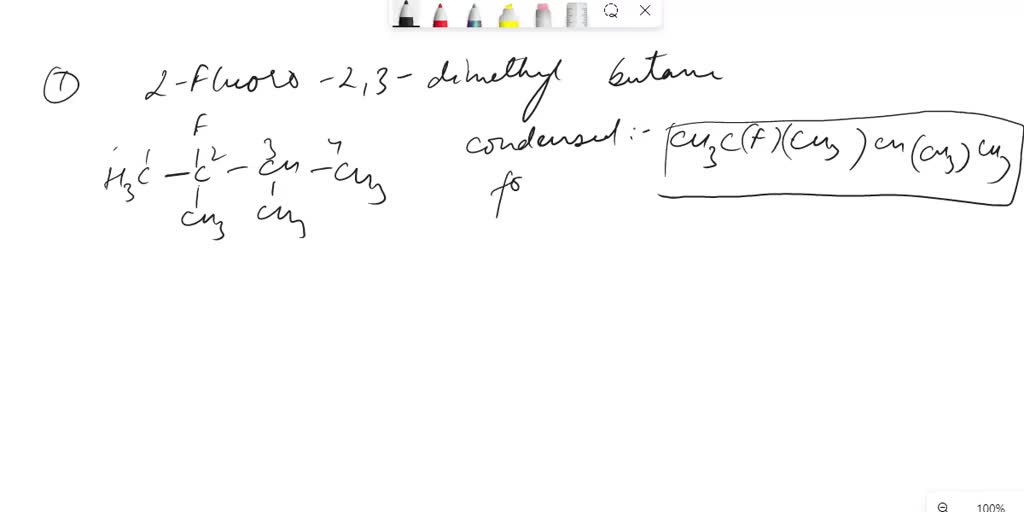 ① 2-Fluoro-2,3-dimethyl butane
F
1 2 3 4
H₃C - C - CH - CH₃
CH₃ CH₃
condensed :- CH₃C(F)(CH₃)CH(CH₃)CH₃
fo
100%